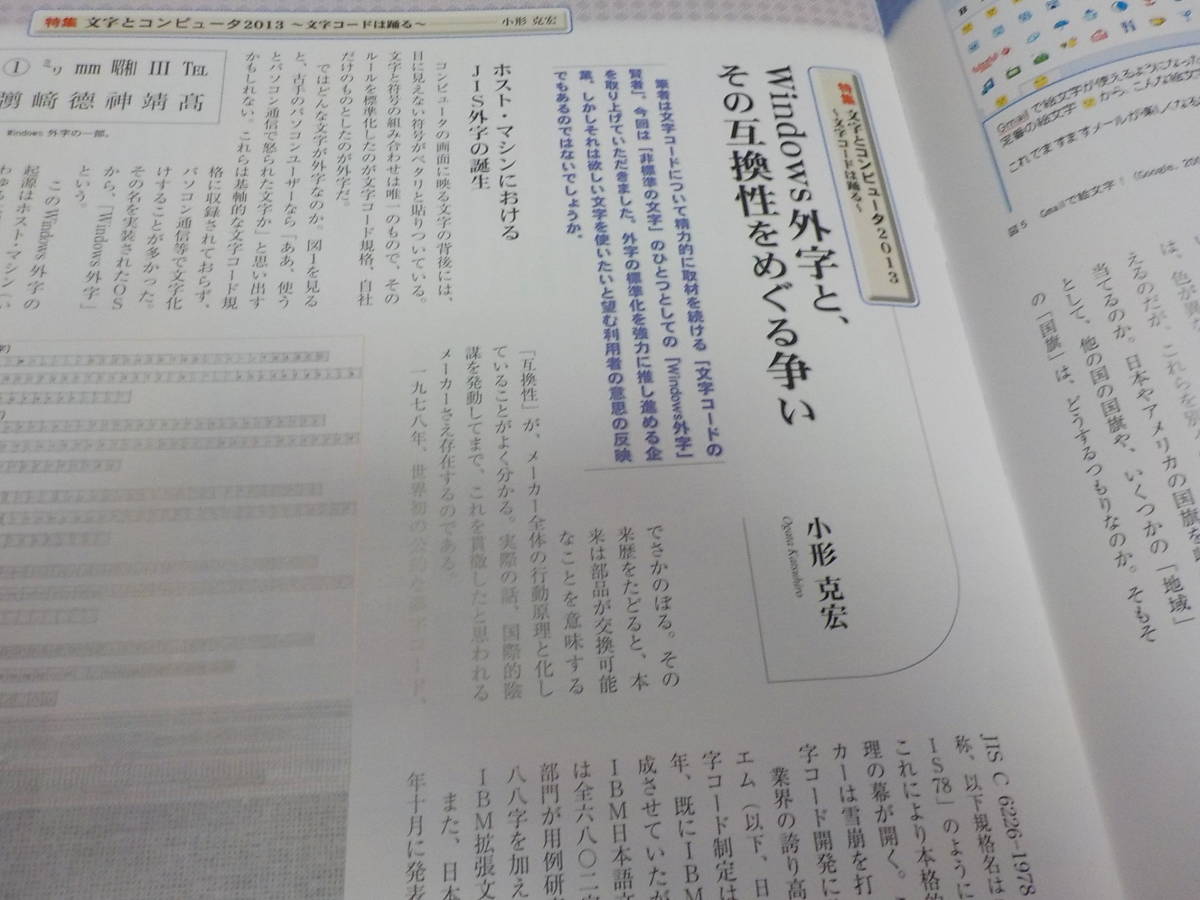 B
Gmailで絵文字が使えるようになった
定番の絵文字 から、こんな絵文
これでますますメールが楽しくなる
図5 Gmailで絵文字！ (Google, 200
は、色が異
えるのだが、これらを別
当てるのか。日本やアメリカの国旗を
として、他の国の国旗や、いくつかの「地域」
の「国旗」は、どうするつもりなのか。そもそ
特集 文字とコンピュータ2013 ～文字コードは踊る～
小形 克宏
特集 文字とコンピュータ2013
～文字コードは踊る～
Windows外字と、
その互換性をめぐる争い
小形 克宏
Ogata Katsuhiro
筆者は文字コードについて精力的に取材を続ける「文字コードの
賢者」。今回は「非標準の文字」のひとつとしての「Windows外字」
を取り上げていただきました。外字の標準化を強力に推し進める企
業。しかしそれは欲しい文字を使いたいと望む利用者の意思の反映
でもあるのではないでしょうか。
ホスト・マシンにおける
JIS外字の誕生
コンピュータの画面に映る文字の背後には、
目に見えない符号がペタリと貼りついている。
文字と符号の組み合わせは唯一のもので、その
ルールを標準化したのが文字コード規格、自社
だけのものとしたのが外字だ。
ではどんな文字が外字なのか。図1を見る
と、古手のパソコンユーザーなら「ああ、使う
とパソコン通信で怒られた文字か」と思い出す
かもしれない。これらは基軸的な文字コード規
格に収録されておらず、
パソコン通信等で文字化
けすることが多かった。
その名を実装されたOS
から、「Windows外字」
という。
このWindows外字の
起源はホスト・マシン（い
① ㍉ ㎜ ㍼ Ⅲ ℡
﨑 德 神 靖 髙
Windows 外字の一部。
でさかのぼる。その
来歴をたどると、本
来は部品が交換可能
なことを意味する
「互換性」が、メーカー全体の行動原理と化し
ていることがよく分かる。実際の話、国際的陰
謀を発動してまで、これを貫徹したと思われる
メーカーさえ存在するのである。
一九七八年、世界初の公的な漢字コード、
JIS C 6226-1978
称、以下規格名は
IS78」のように
これにより本格的
理の幕が開く。
カーは雪崩を打
字コード開発に
業界の誇り高
エム（以下、日
字コード制定は
年、既にIBM
成させていたが
IBM日本語文
は全六八〇二字
部門が用例研
八八字を加え
IBM拡張文
また、日本
年十月に発表